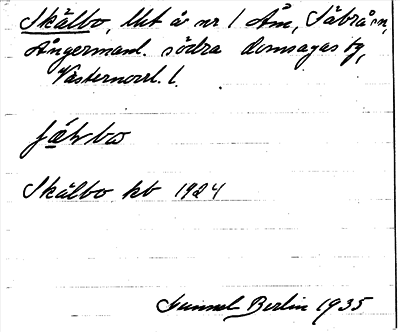 Skålbo, litet å nr 1 Åm, Säbrå sn,
Ångermanl. södra domsagas tg,
Västernorrl. l.
Skålbo kb 1924
Gunnel Berlin 1935